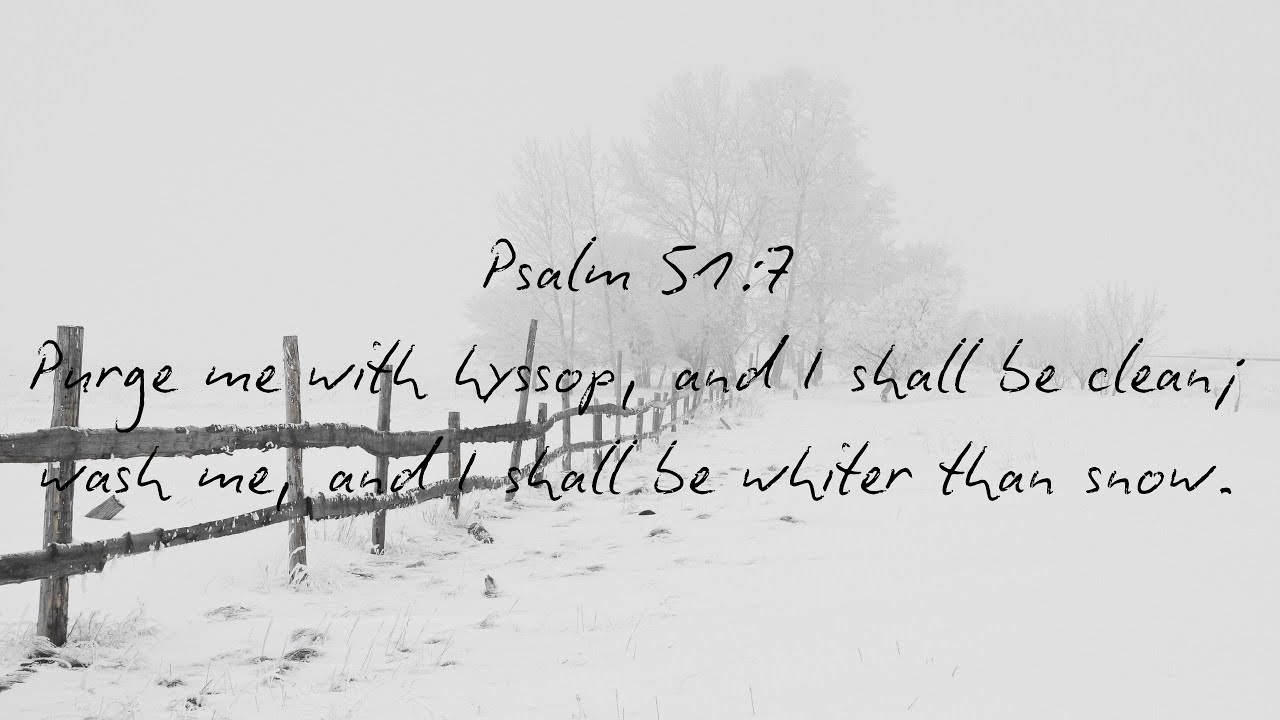 Psalm 51:7
Purge me with hyssop, and I shall be clean;
wash me, and I shall be whiter than snow.